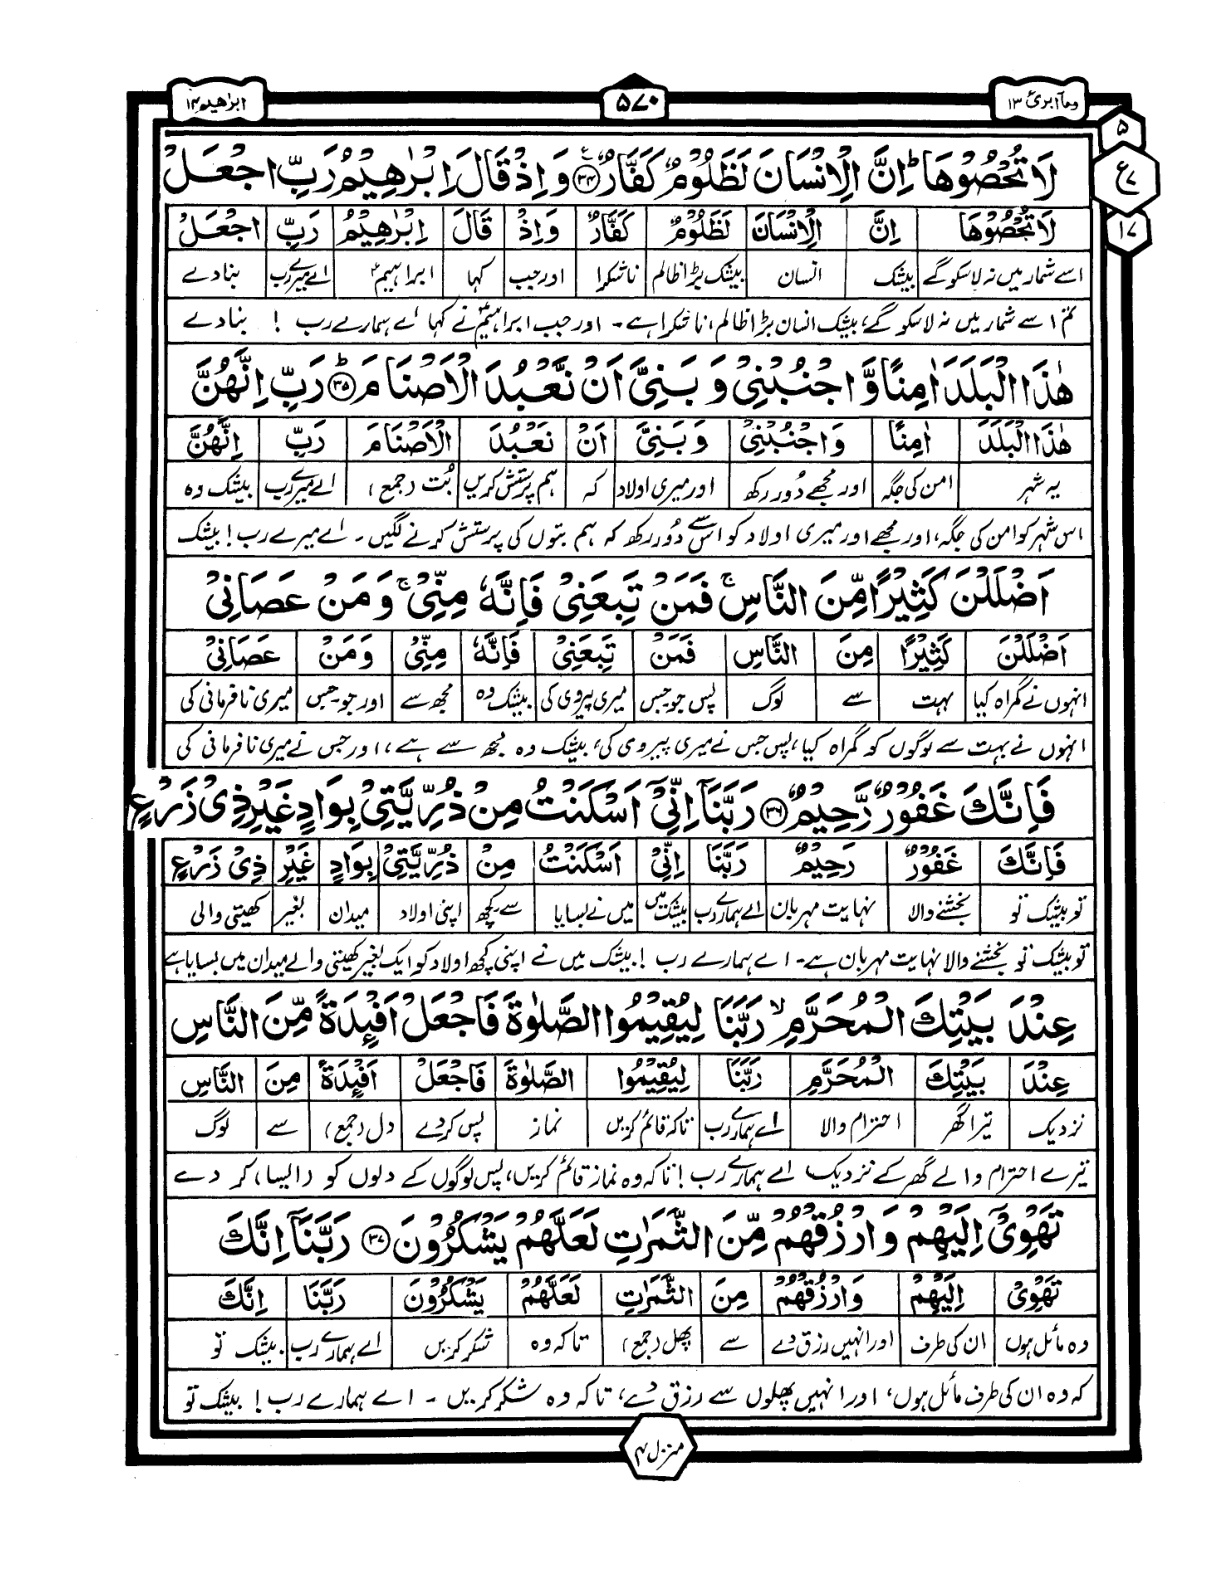 ابراهيم ۱۴ ۵۷۰ وما ابرئ ۱۳
۵
ع ۷
۱۷
لَا تُحْصُوْهَا ؕ اِنَّ الْاِنْسَانَ لَظَلُوْمٌ كَفَّارٌ ﴿۳۴﴾ وَ اِذْ قَالَ اِبْرٰهِيْمُ رَبِّ اجْعَلْ
لَا تُحْصُوْهَا اِنَّ الْاِنْسَانَ لَظَلُوْمٌ كَفَّارٌ وَاِذْ قَالَ اِبْرٰهِيْمُ رَبِّ اجْعَلْ
اسے شمار میں نہ لا سکو گے بیشک انسان بیشک بڑا ظالم ناشکرا اور جب کہا ابراہیمؑ اے میرے رب بنا دے
تم اسے شمار میں نہ لا سکو گے، بیشک انسان بڑا ظالم، ناشکرا ہے۔ اور جب ابراہیمؑ نے کہا اے ہمارے رب ! بنا دے
هٰذَا الْبَلَدَ اٰمِنًا وَّ اجْنُبْنِيْ وَ بَنِيَّ اَنْ نَّعْبُدَ الْاَصْنَامَ ؕ﴿۳۵﴾ رَبِّ اِنَّهُنَّ
هٰذَا الْبَلَدَ اٰمِنًا وَاجْنُبْنِيْ وَبَنِيَّ اَنْ نَعْبُدَ الْاَصْنَامَ رَبِّ اِنَّهُنَّ
یہ شہر امن کی جگہ اور مجھے دُور رکھ اور میری اولاد کہ ہم پرستش کریں بُت (جمع) اے میرے رب بیشک وہ
اس شہر کو امن کی جگہ، اور مجھے اور میری اولاد کو اس سے دُور رکھ کہ ہم بتوں کی پرستش کرنے لگیں ۔ اے میرے رب ! بیشک
اَضْلَلْنَ كَثِيْرًا مِّنَ النَّاسِ ۚ فَمَنْ تَبِعَنِيْ فَاِنَّهٗ مِنِّيْ ۚ وَ مَنْ عَصَانِيْ
اَضْلَلْنَ كَثِيْرًا مِنَ النَّاسِ فَمَنْ تَبِعَنِيْ فَاِنَّهٗ مِنِّيْ وَمَنْ عَصَانِيْ
انہوں نے گمراہ کیا بہت سے لوگ پس جو جس میری پیروی کی بیشک وہ مجھ سے اور جو جس میری نافرمانی کی
انہوں نے بہت سے لوگوں کو گمراہ کیا، پس جس نے میری پیروی کی، بیشک وہ مجھ سے ہے، اور جس نے میری نافرمانی کی
فَاِنَّكَ غَفُوْرٌ رَّحِيْمٌ ﴿۳۶﴾ رَبَّنَاۤ اِنِّيْۤ اَسْكَنْتُ مِنْ ذُرِّيَّتِيْ بِوَادٍ غَيْرِ ذِيْ زَرْعٍ
فَاِنَّكَ غَفُوْرٌ رَحِيْمٌ رَبَّنَا اِنِّيْ اَسْكَنْتُ مِنْ ذُرِّيَّتِيْ بِوَادٍ غَيْرِ ذِيْ زَرْعٍ
تو بیشک تو بخشنے والا نہایت مہربان اے ہمارے رب بیشک میں میں نے بسایا سے کچھ اپنی اولاد میدان بغیر کھیتی والی
تو بیشک تو بخشنے والا نہایت مہربان ہے۔ اے ہمارے رب ! بیشک میں نے اپنی کچھ اولاد کو ایک بغیر کھیتی والے میدان میں بسایا ہے
عِنْدَ بَيْتِكَ الْمُحَرَّمِ ۙ رَبَّنَا لِيُقِيْمُوا الصَّلٰوةَ فَاجْعَلْ اَفْئِدَةً مِّنَ النَّاسِ
عِنْدَ بَيْتِكَ الْمُحَرَّمِ رَبَّنَا لِيُقِيْمُوا الصَّلٰوةَ فَاجْعَلْ اَفْئِدَةً مِنَ النَّاسِ
نزدیک تیرا گھر احترام والا اے ہمارے رب تاکہ قائم کریں نماز پس کر دے دل (جمع) سے لوگ
تیرے احترام والے گھر کے نزدیک اے ہمارے رب ! تاکہ وہ نماز قائم کریں، پس لوگوں کے دلوں کو (ایسا) کر دے
تَهْوِيْۤ اِلَيْهِمْ وَ ارْزُقْهُمْ مِّنَ الثَّمَرٰتِ لَعَلَّهُمْ يَشْكُرُوْنَ ﴿۳۷﴾ رَبَّنَاۤ اِنَّكَ
تَهْوِيْ اِلَيْهِمْ وَارْزُقْهُمْ مِنَ الثَّمَرٰتِ لَعَلَّهُمْ يَشْكُرُوْنَ رَبَّنَا اِنَّكَ
وہ مائل ہوں ان کی طرف اور انہیں رزق دے سے پھل (جمع) تاکہ وہ شکر کریں اے ہمارے رب بیشک تو
کہ وہ ان کی طرف مائل ہوں، اور انہیں پھلوں سے رزق دے، تاکہ وہ شکر کریں ۔ اے ہمارے رب ! بیشک تو
منزل ۳